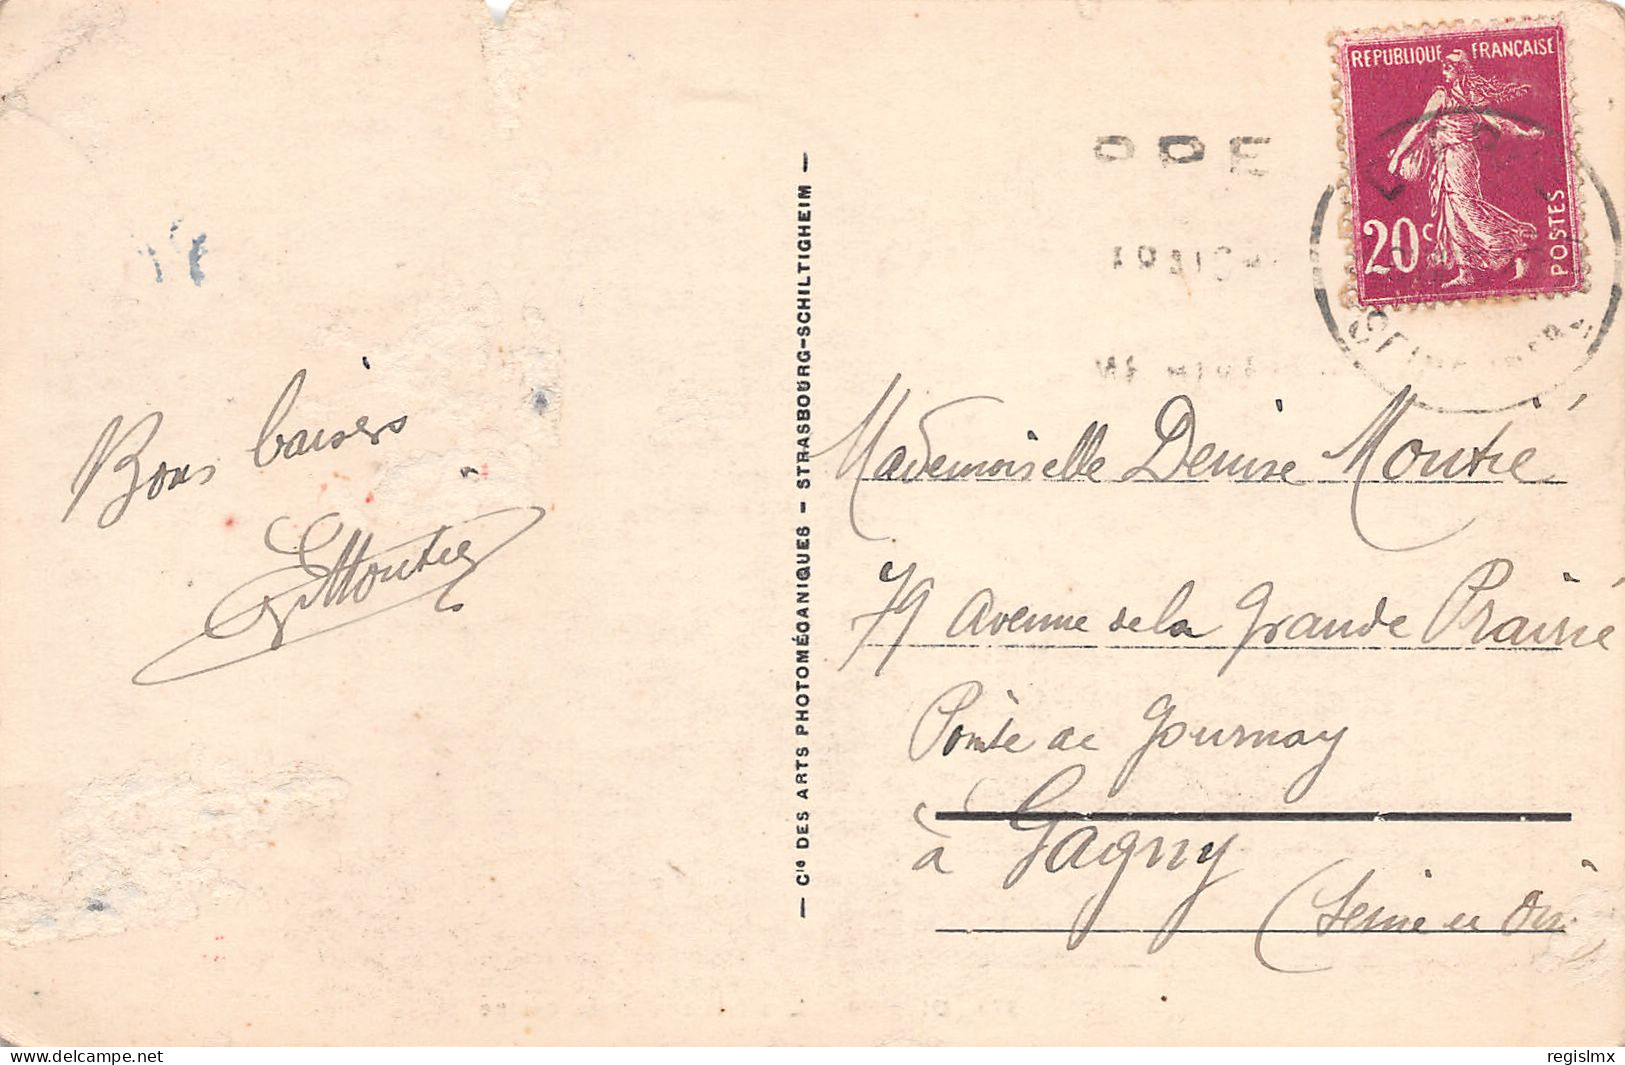 REPUBLIQUE FRANÇAISE
20c
POSTES
Bons baisers
Moutié
— Cie DES ARTS PHOTOMÉCANIQUES — STRASBOURG-SCHILTIGHEIM —
Mademoiselle Denise Moutié
79 avenue de la Grande Prairie
Pointe de Gournay
à Gagny
(Seine et Oise
www.delcampe.net
regislmx